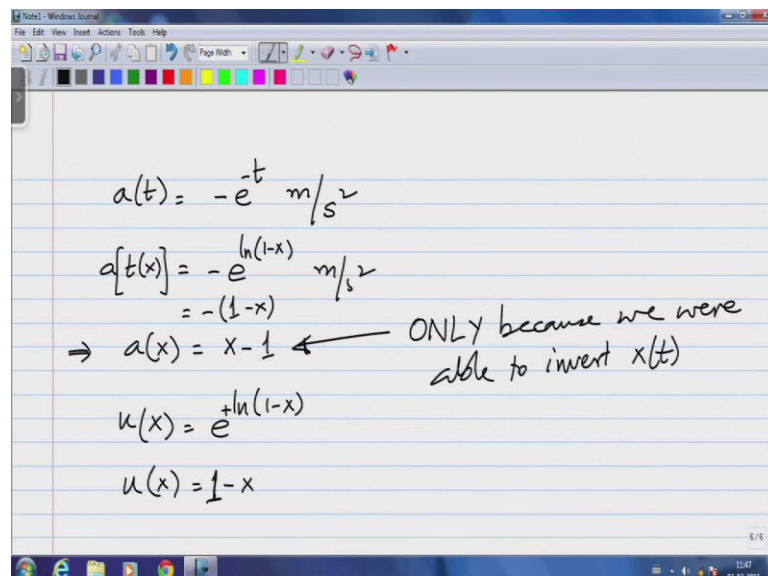 Note1 - Windows Journal
File Edit View Insert Actions Tools Help
Page Width
a(t) = -e^-t m/s^2
a[t(x)] = -e^ln(1-x) m/s^2
= -(1-x)
⇒ a(x) = x - 1 ← ONLY because we were
able to invert x(t)
u(x) = e^+ln(1-x)
u(x) = 1-x
6/6
11:47